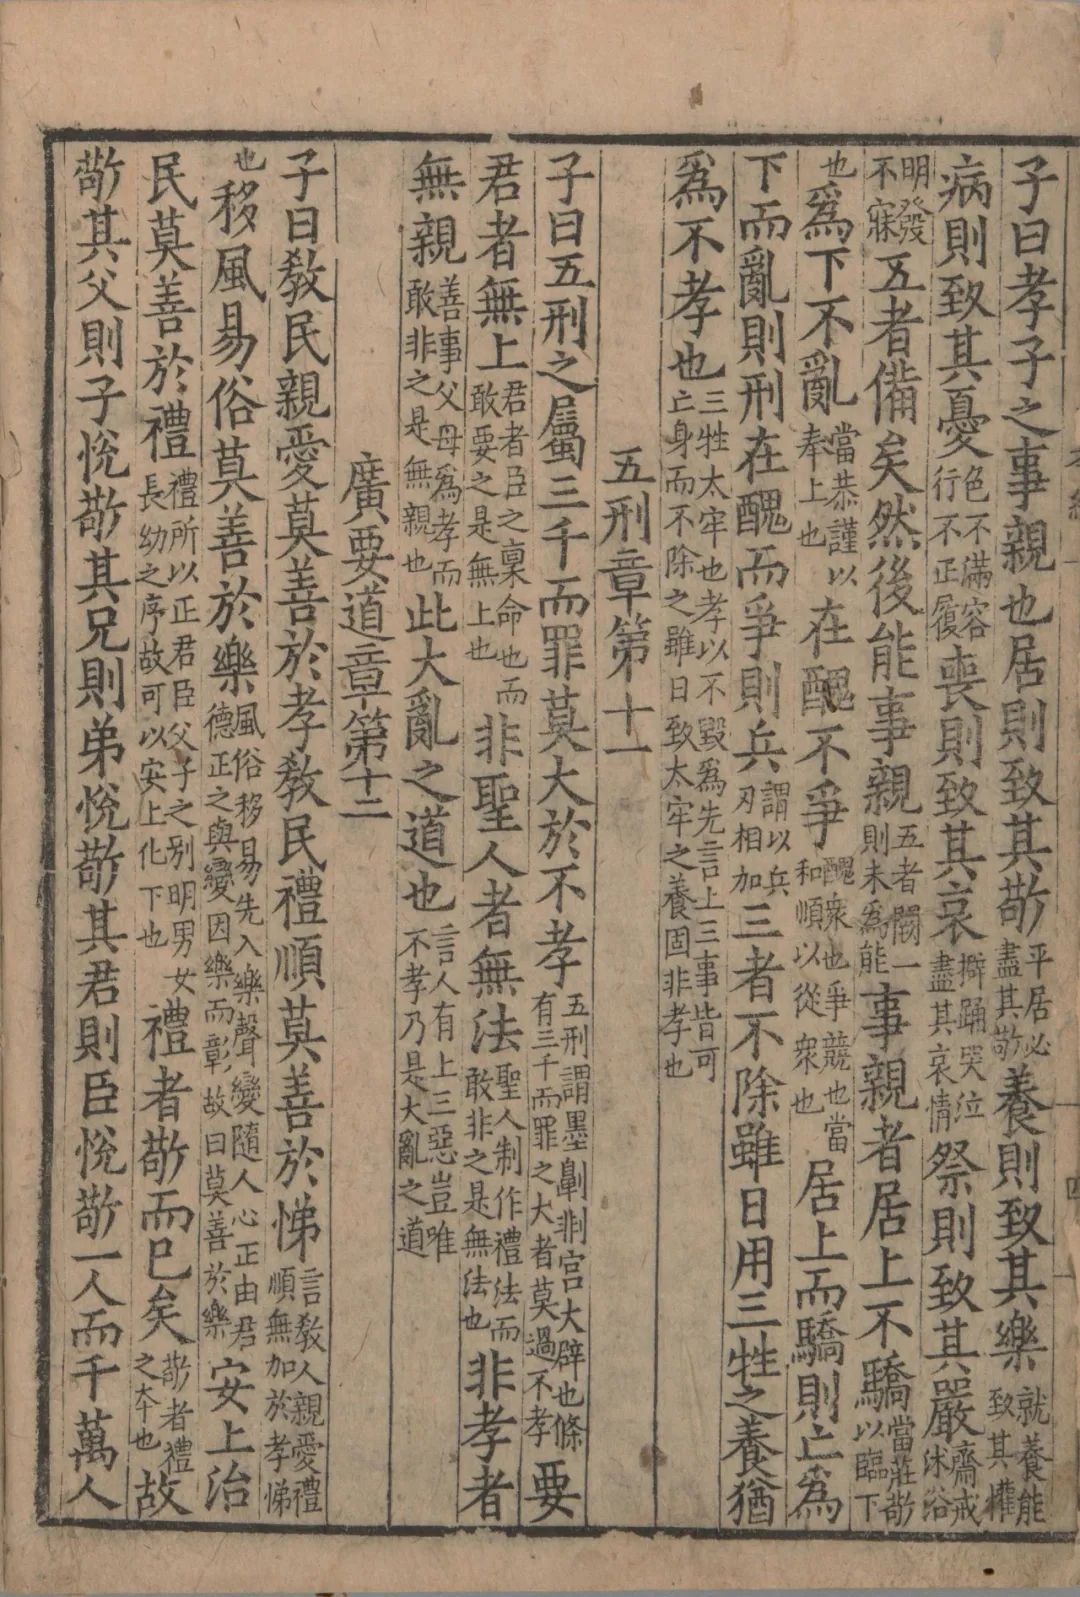 子曰孝子之事親也居則致其敬平居必盡其敬養則致其樂就養能致其懽
病則致其憂色不滿容行不正履喪則致其哀擗踊哭泣盡其哀情祭則致其嚴齋戒沐浴
明發不寐五者備矣然後能事親五者闕一則未爲能事親者居上不驕當莊敬以臨下
也爲下不亂當恭謹以奉上也在醜不爭醜衆也爭競也當和順以從衆也居上而驕則亡爲
下而亂則刑在醜而爭則兵謂以兵刃相加三者不除雖日用三牲之養猶
爲不孝也三牲太牢也孝以不毀爲先言上三事皆可亡身而不除之雖日致太牢之養固非孝也
五刑章第十一
子曰五刑之屬三千而罪莫大於不孝五刑謂墨劓剕宮大辟也條有三千而罪之大者莫過不孝要
君者無上君者臣之稟命也而敢要之是無上也非聖人者無法聖人制作禮法而敢非之是無法也非孝者
無親善事父母爲孝而敢非之是無親也此大亂之道也言人有上三惡豈唯不孝乃是大亂之道
廣要道章第十二
子曰敎民親愛莫善於孝敎民禮順莫善於悌言敎人親愛禮順無加於孝悌
也移風易俗莫善於樂風俗移易先入樂聲變隨人心正由君德正之與變因樂而彰故曰莫善於樂安上治
民莫善於禮禮所以正君臣父子之別明男女長幼之序故可以安上化下也禮者敬而已矣敬者禮之本也故
敬其父則子悅敬其兄則弟悅敬其君則臣悅敬一人而千萬人